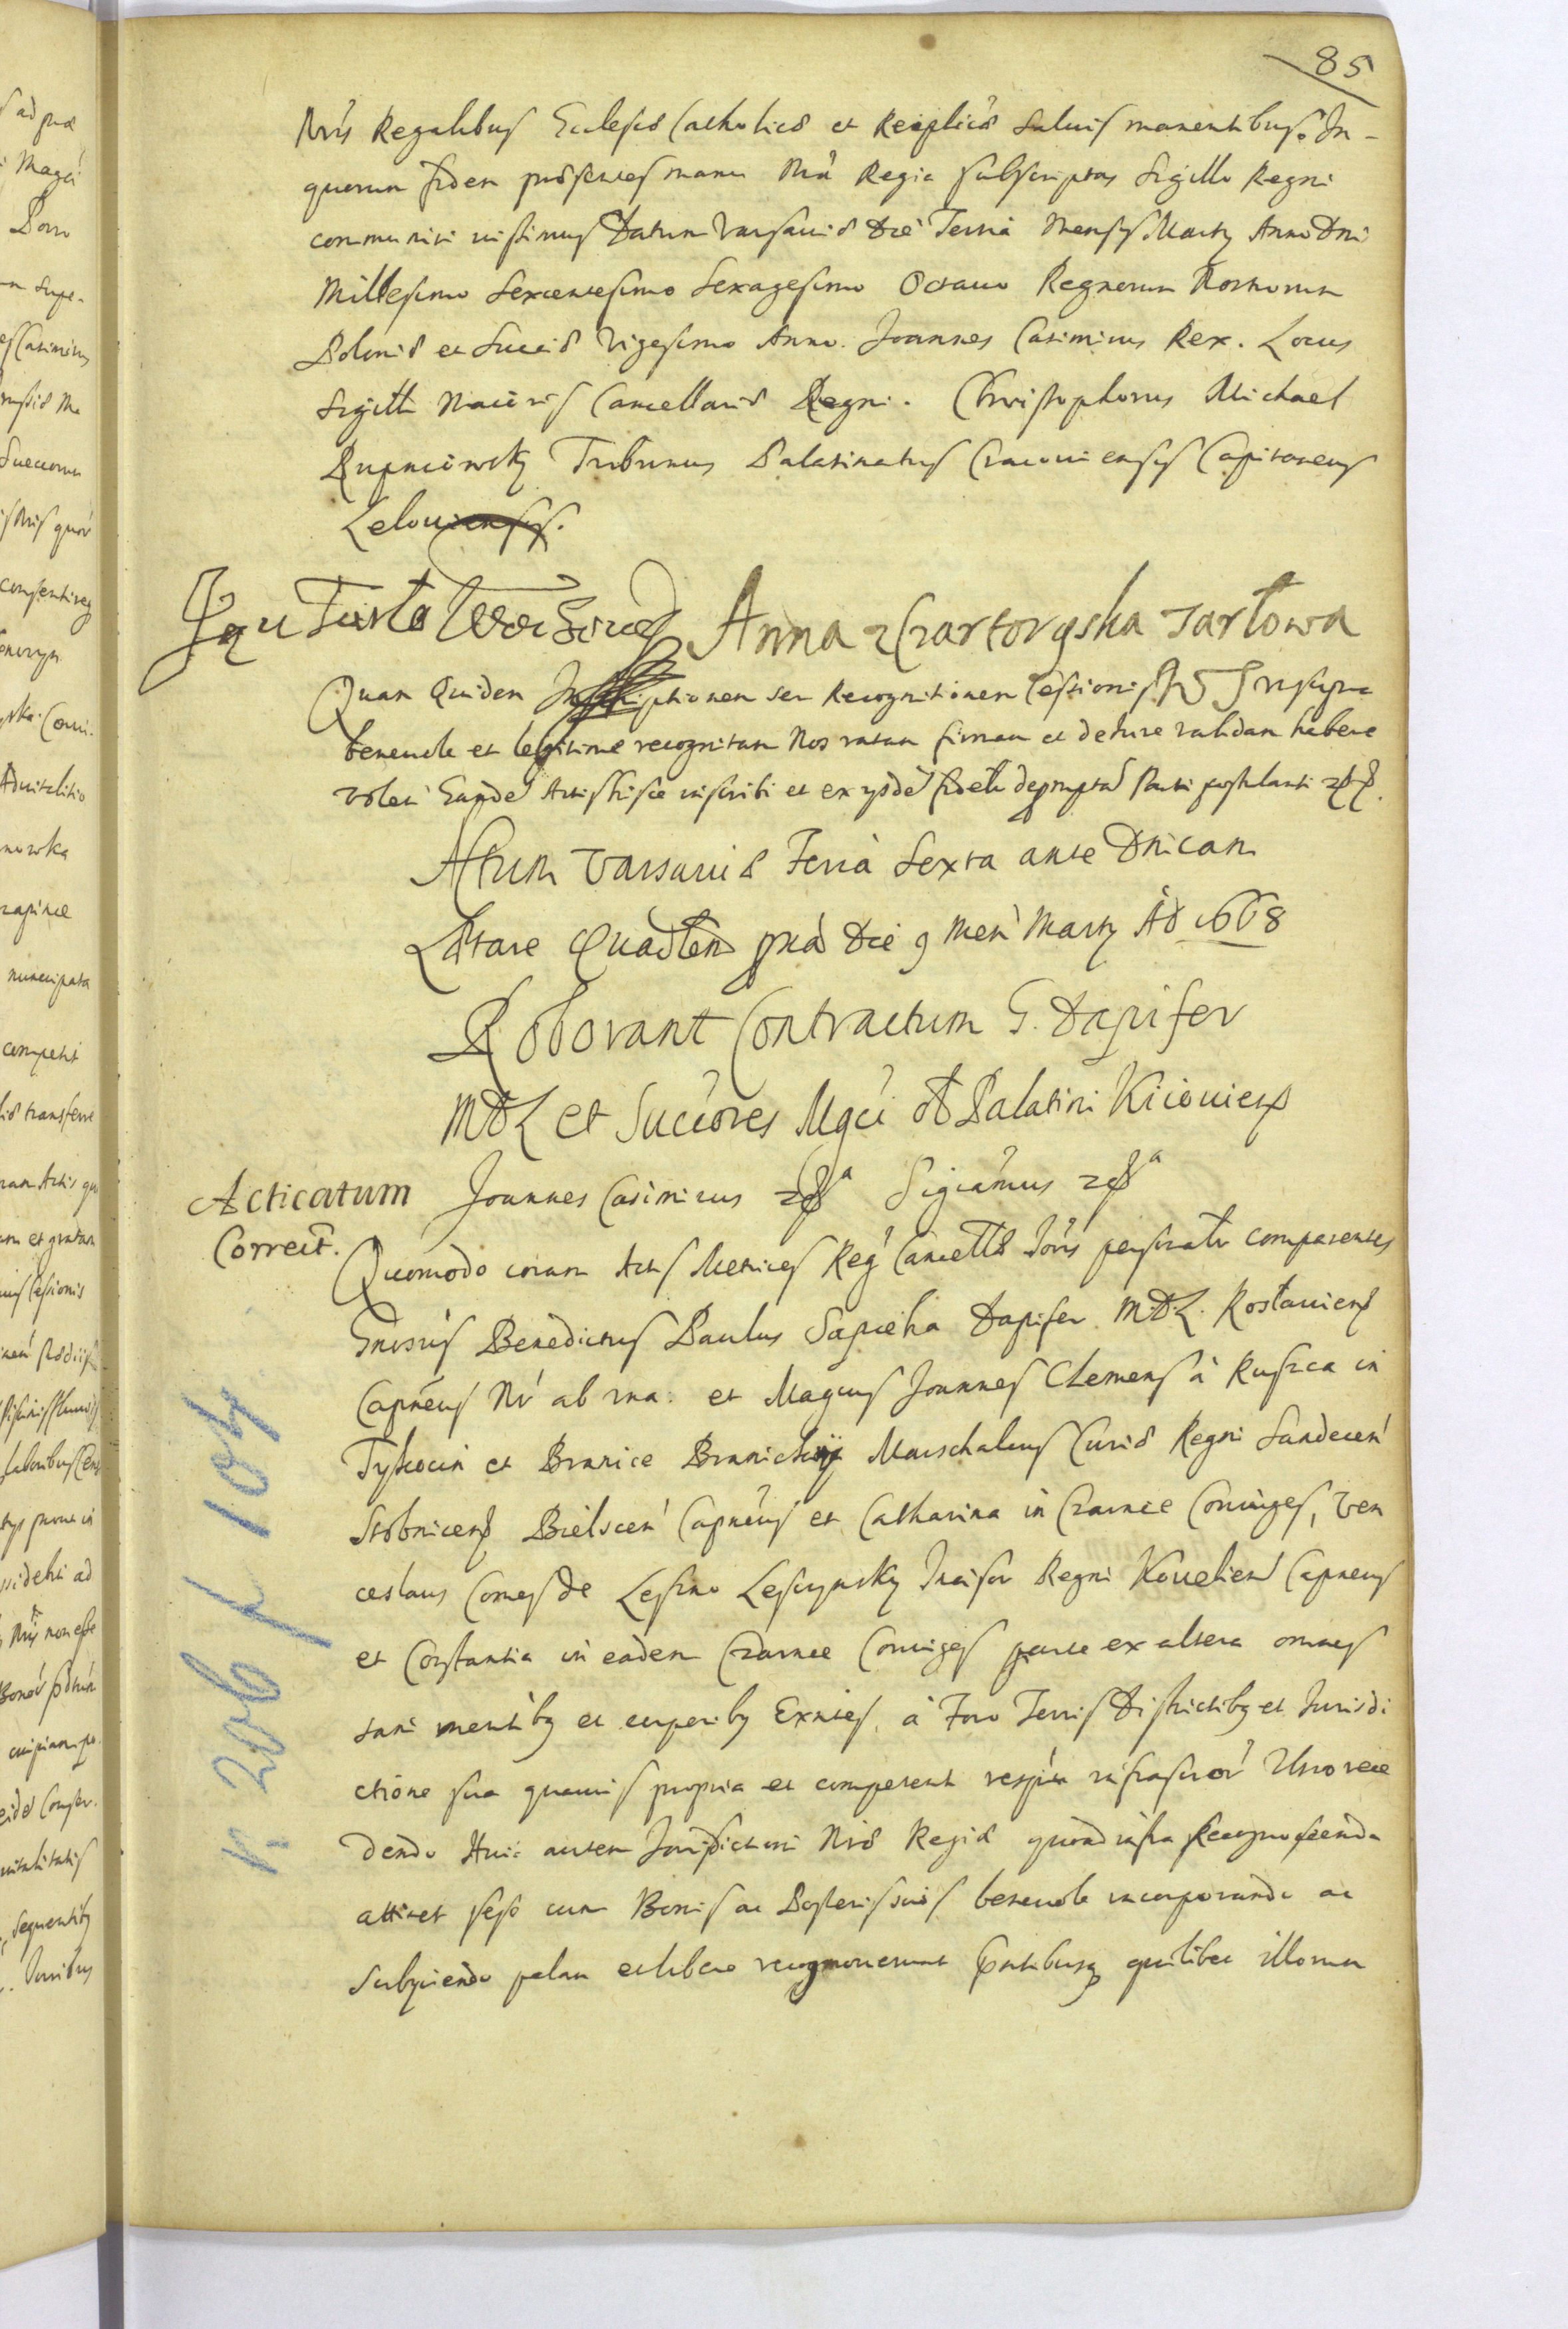 85
Nris Regalibus Ecclesiæ Catholicæ et Reiplicæ salvis manentibus. In-
quorum fidem præsentes manu Nra Regia subscriptas Sigillo Regni
communiri iussimus Datum Varsaviæ Die Tertia Mensis Marty Anno Dni
Millesimo Sexcentesimo Sexagesimo Octavo Regnorum Nostrorum
Poloniæ et Sueciæ Vigesimo Anno. Joannes Casimirus Rex. Locus
Sigilli Maioris Cancellariæ Regni. Christophorus Michael
Rupniowsky Tribunus Palatinatus Cracoviensis Capitaneus
Leloviensis.
Jan Tarło Anna Czartoryska Tarłowa
Quam Quidem Inscriptionem seu Recognitionem Cessionis
benevole et legitime recognitam Nos ratam firmam et de iure validam habere
volen Eandē Actis hisce inscribi et ex ysdē fideli depromptā Parti postulanti
Actum Varsaviæ Feria Sexta ante Dnicam
Lætare Quadlem pxa Die 9 Men Marty AD 1668
Roborant Contractum G. Dapifer
MDL et Succores Mgci ol Palatini Kiiouiens
Acticatum Joannes Casimirus Sigcamus
Correct. Quomodo coram Actis Metrices Reg Cancell Joris personalr comparentes
Gnosus Benedictus Paulus Sapieha Dapifer M.D.L. Rostawiens
Capneus Nr ab una. et Magcus Joannes Clemens à Ruszca in
Tykocin et Branice Branicky Marschalcus Curiæ Regni Sandecen
Stobnicens Bielscen Capneus et Catharina in Czarnce Coniuges, Ven
ceslaus Comes de Leszno Lesczynsky Incisor Regni Kovelien Capneus
et Constantia in eadem Czarnce Coniuges parte ex altera omnes
sani mentibꝫ et corporibꝫ Exntes, à Foro Terris Districtibꝫ et Jurisdi
ctione sua quavis propria et competenti respectu infrascror Usro rece
dendo Huic autem Jurisdictioni Nræ Regiæ quoad infra Recognoscenda
attinet sese cum Bonis ac Posteris suis benevole incorporando ac
subyciendo palam et libere recognoverunt pntibusq quilibet illorum
k. 206 / 107